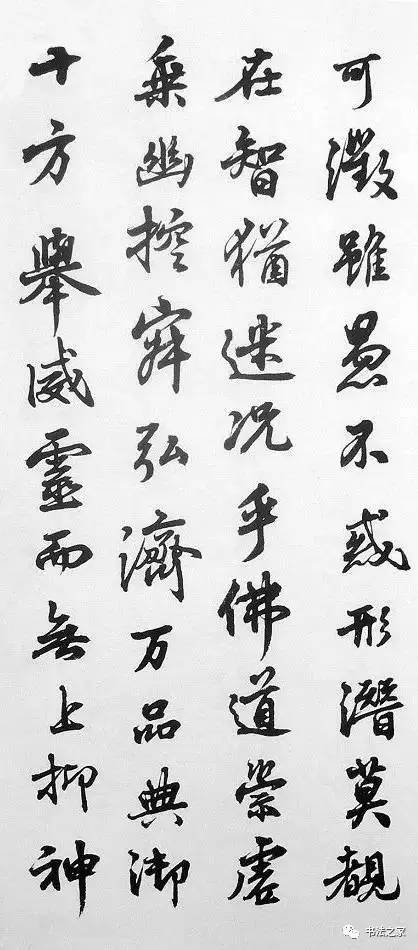 可徵雖愚不惑形潛莫覩
在智猶迷况乎佛道崇虛
乘幽控寂弘濟万品典御
十方舉威靈而無上抑神
书法之家